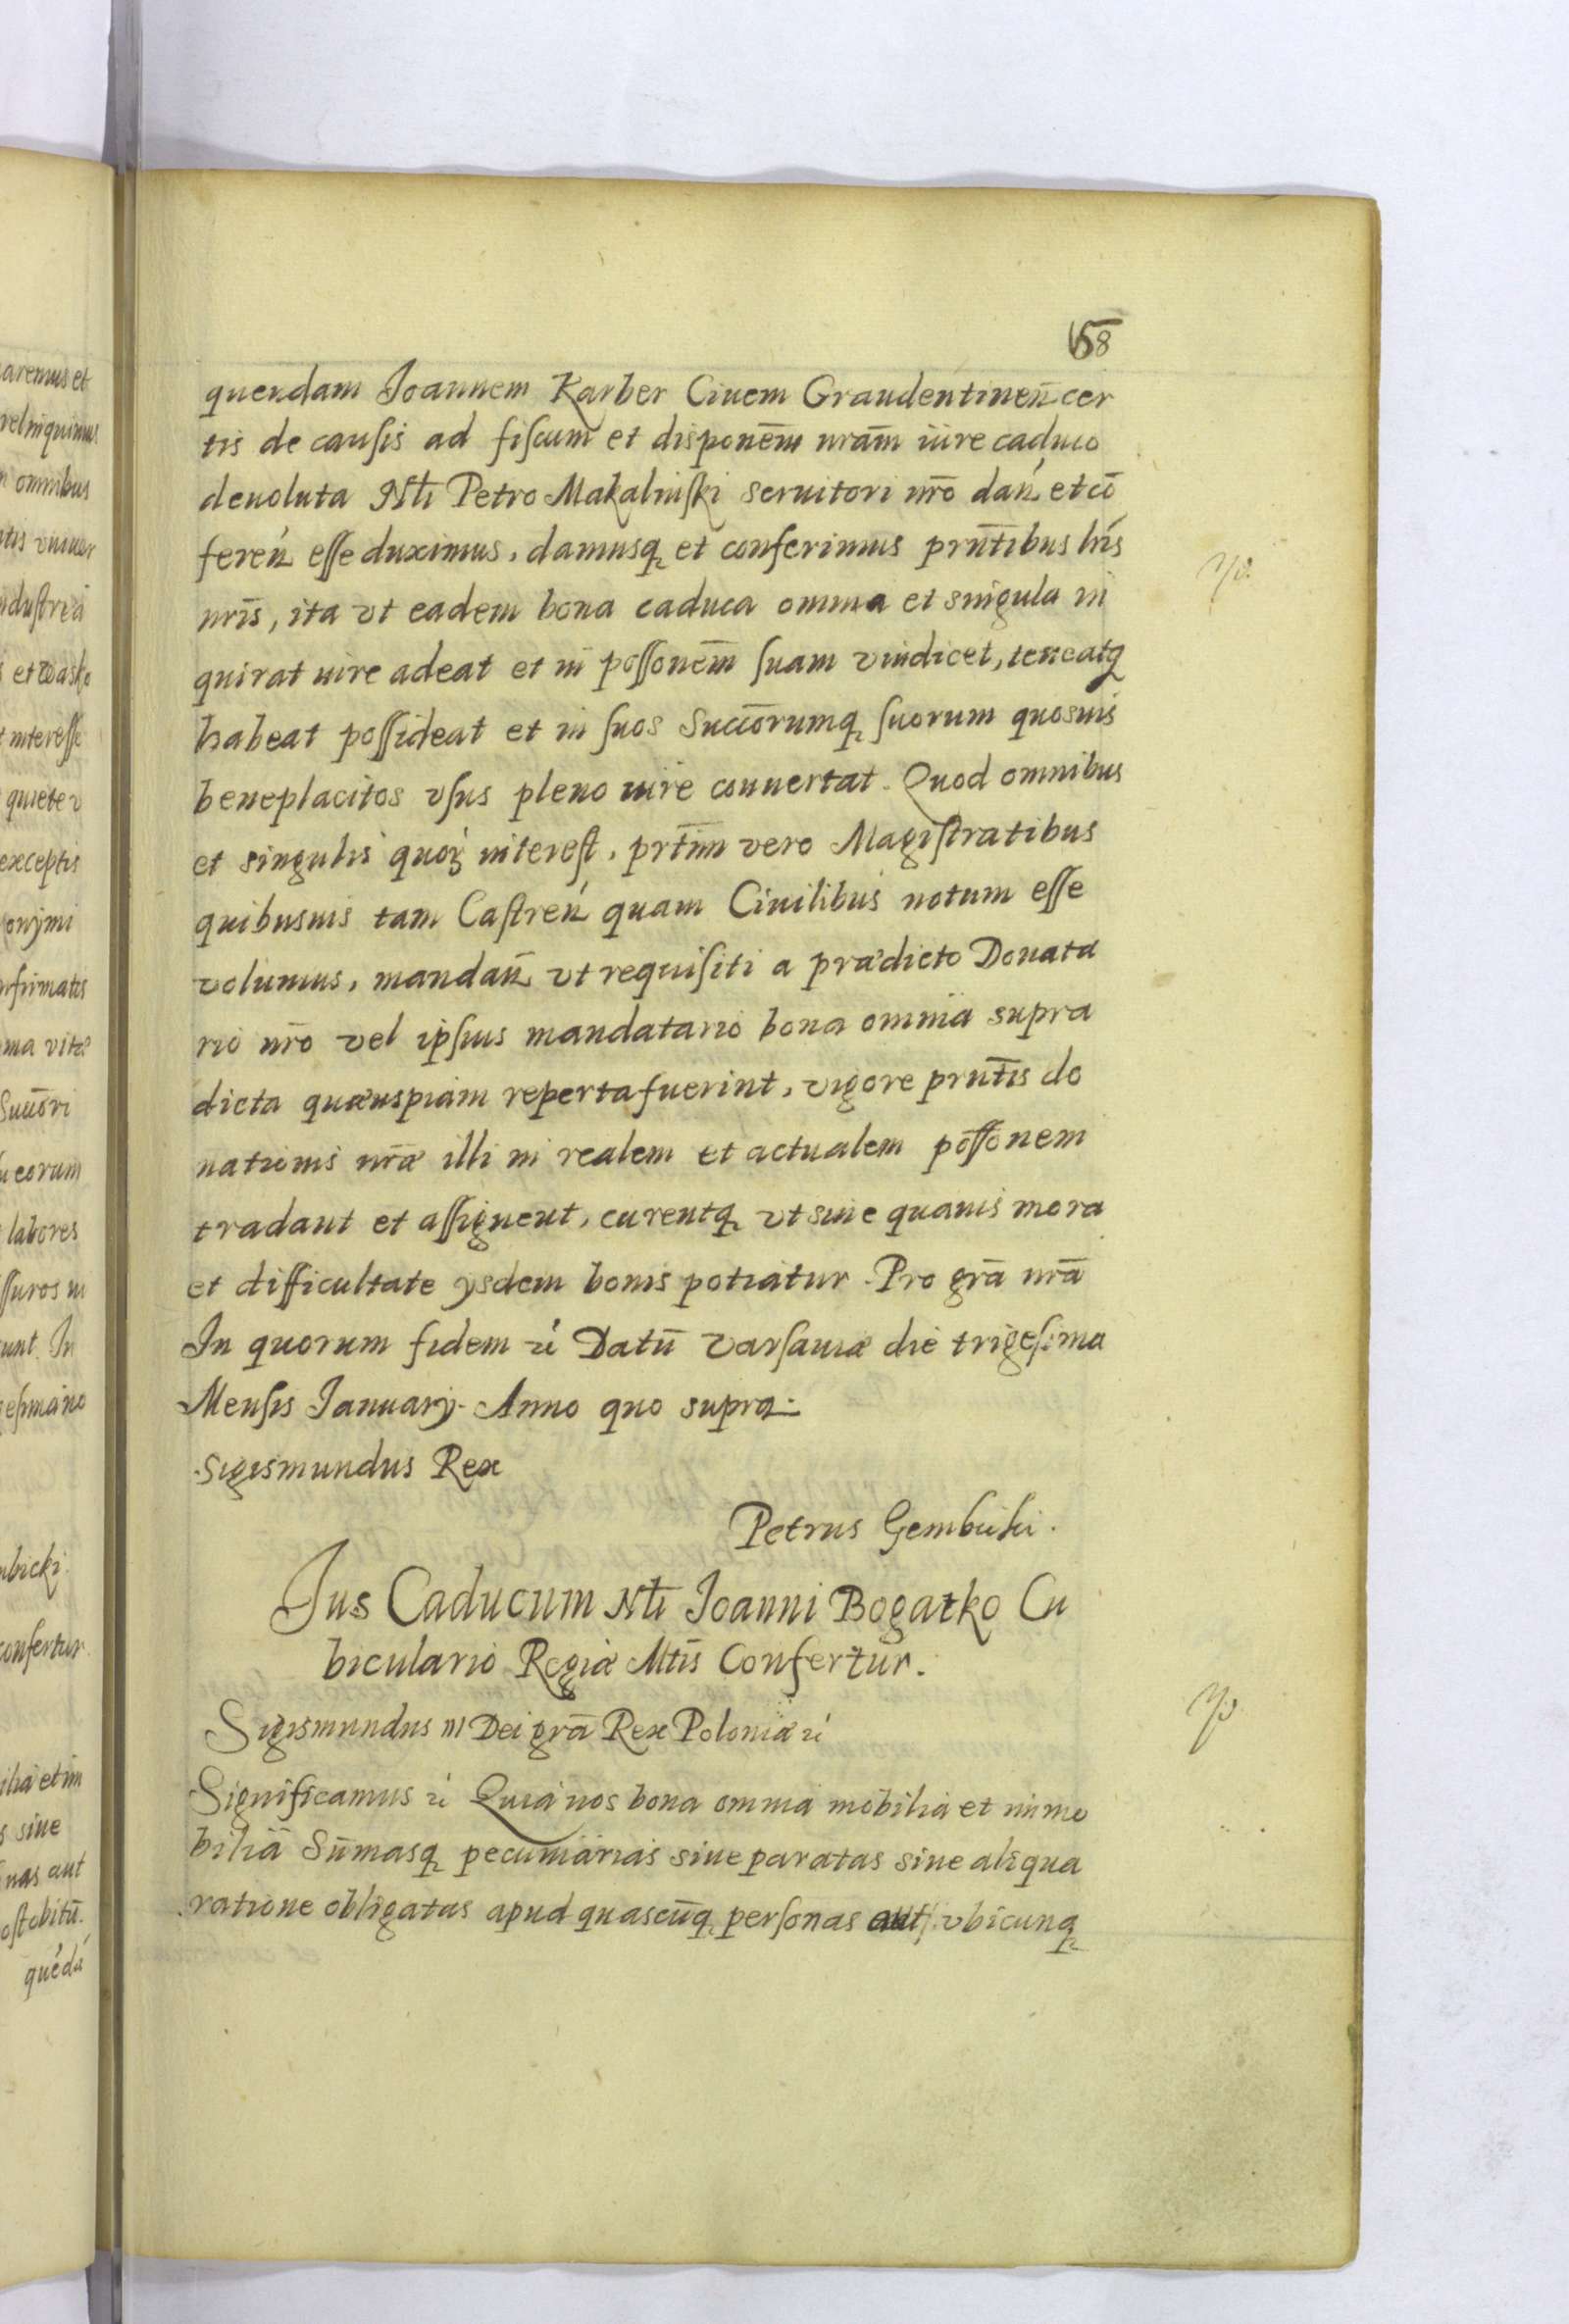 58
quendam Joannem Karber Ciuem Graudentineñ cer
tis de causis ad fiscum et disponem̄ nram̄ iure caduco
deuoluta Nłi Petro Makaliuski Seruitori nrō dań et cō
fereń esse duximus, damusq et conferimus prnt̄ibus lrīs
nrīs, ita vt eadem bona caduca omnia et singula in
quirat iure adeat et in possonem̄ suam vindicet, teneatq
habeat possideat et in suos Succōrumq suorum quosuis
beneplacitos vsus pleno iure conuertat. Quod omnibus
et singulis quoꝝ interest, prt̄im vero Magistratibus
quibusuis tam Castreń quam Ciuilibus notum esse
volumus, mandań vt requisiti a prædicto Donata
rio nrō vel ipsius mandatario bona omnia supra
dicta quæuspiam reperta fuerint, vigore prnt̄is do
nationis nrǣ illi in realem et actualem pōssonem
tradant et assignent, curentq vt sine quauis mora
et difficultate ysdem bonis potiatur. Pro grā nrā
In quorum fidem ꝛć Datū Varsauiæ die trigesima
Mensis January. Anno quo supra.
Sigismundus Rex
Petrus Gembicki.
Jus Caducum Nłi Joanni Bogatko Cu
biculario Regiæ Mtīs Confertur.
Sigismundus III Dei grā Rex Poloniæ ꝛć
Significamus ꝛć Quia nos bona omnia mobilia et immo
bilia Sūmasq pecuniarias siue paratas siue aliqua
ratione obligatas apud quascūq personas aut vbicunq